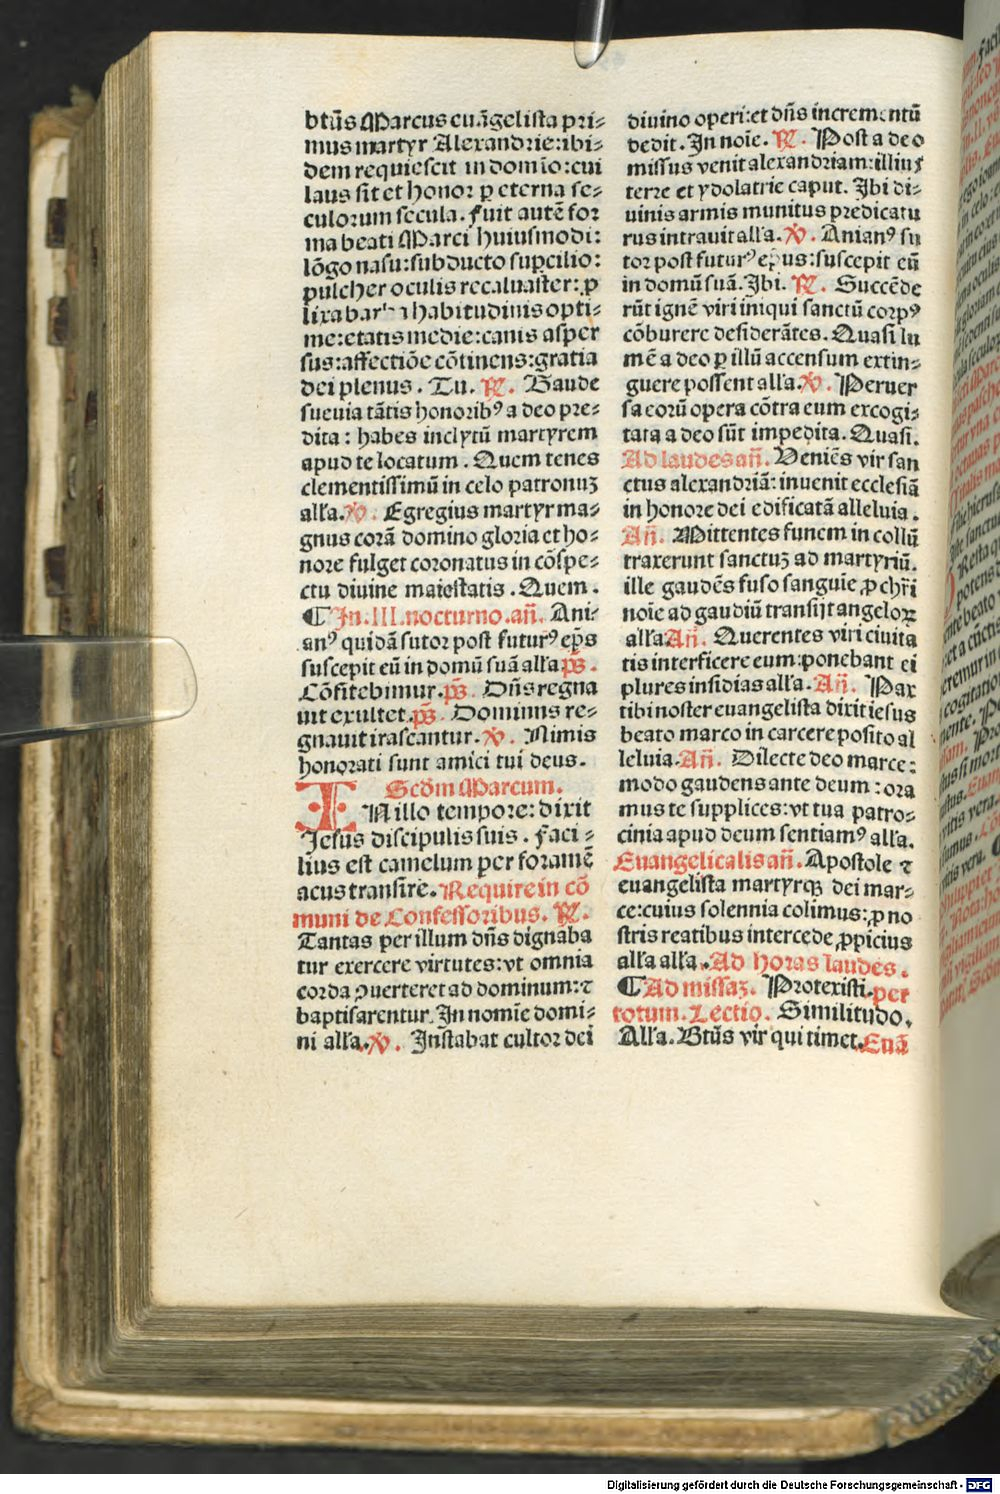 btūs Marcus euāgelista pri⸗
mus martyr Alexandrie: ibi⸗
dem requiescit in domīo: cui
laus sit et honor ꝑ eterna se⸗
culorum secula. Fuit autē for
ma beati Marci huiusmodi:
lōgo naso: subducto suꝑcilio:
pulcher oculis recaluaster: ꝓ
lixa habitudinis opti⸗
me: etatis medie: canis asper
sus: affectiōe cōtinens: gratia
dei plenus. Tu. ℟. Gaude
sueuia tātis honoribꝰ a deo pre⸗
dita: habes inclytū martyrem
apud te locatum. Quem tenes
clementissimū in celo patronuꝫ
alľa. ℣. Egregius martyr ma⸗
gnus corā domino gloria et ho⸗
nore fulget coronatus in cōspe⸗
ctu diuine maiestatis. Quem.
¶ In .III. nocturno. añ. Ani⸗
anꝰ quidā sutor post futurꝰ ep̄s
suscepit eū in domū suā alľa p̄s.
Cōfitebimur. p̄s. Dñs regna
uit exultet. p̄s. Dominus re⸗
gnauit irascantur. ℣. Nimis
honorati sunt amici tui deus.
Scd̄m Marcum.
IN illo tempore: dixit
Jesus discipulis suis. Faci⸗
lius est camelum per foramē
acus transire. Require in cō
muni de Confessoribus. ℟.
Tantas per illum dñs dignaba
tur exercere virtutes: vt omnia
corda ꝯuerteret ad dominum: ⁊
baptisarentur. In nomīe domi⸗
ni alľa. ℣. Instabat cultor dei
diuino operi: et dñs incrementū
dedit. In noīe. ℟. Post a deo
missus venit alexandriam: illius
terre et ydolatrie caput. Ibi di⸗
uinis armis munitus predicatu
rus intrauit alľa. ℣. Anianꝰ su
tor post futurꝰ ep̄us: suscepit eū
in domū suā. Ibi. ℟. Succēde
rūt ignē viri iniqui sanctū corpꝰ
cōburere desiderātes. Quasi lu
mē a deo ꝑ illū accensum extin⸗
guere possent alľa. ℣. Peruer
sa eorū opera cōtra eum excogi⸗
tata a deo sūt impedita. Quasi.
Ad laudes añ. Veniēs vir san
ctus alexandriā: inuenit ecclesiā
in honore dei edificatā alleluia.
Añ. Mittentes funem in collū
traxerunt sanctuꝫ ad martyriū.
ille gaudēs fuso sanguīe ꝓ chr̄i
noīe ad gaudiū transijt angeloꝝ
alľa Añ. Querentes viri ciuita
tis interficere eum: ponebant ei
plures insidias alľa. Añ. Pax
tibi noster euangelista dixit iesus
beato marco in carcere posito al
leluia. Añ. Dilecte deo marce:
modo gaudens ante deum: ora
mus te supplices: vt tua patro⸗
cinia apud deum sentiamꝰ alľa.
Euangelicalis añ. Apostole ⁊
euangelista martyrqꝫ dei mar⸗
ce: cuius solennia colimus: ꝓ no
stris reatibus intercede ꝓpicius
alľa alľa. Ad horas laudes.
¶ Ad missaꝫ. Protexisti. per
totum. Lectio. Similitudo.
Alľa. Btūs vir qui timet. Euā
Digitalisierung gefördert durch die Deutsche Forschungsgemeinschaft - DFG